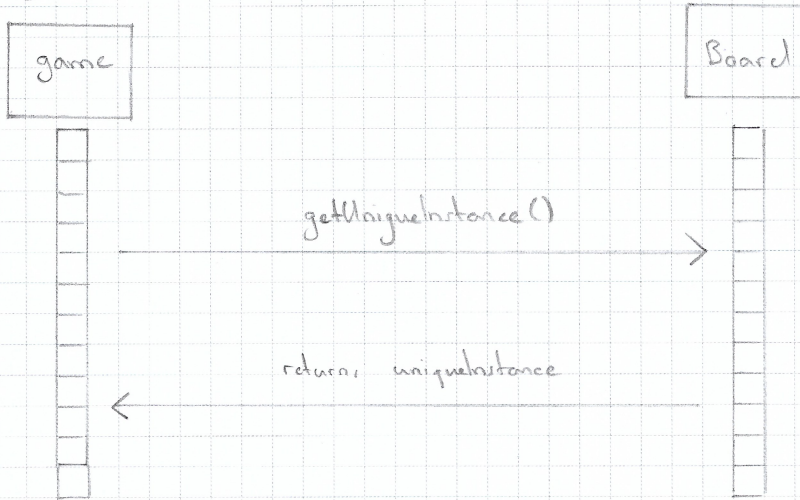 game
Board
getUniqueInstance()
return: uniqueInstance